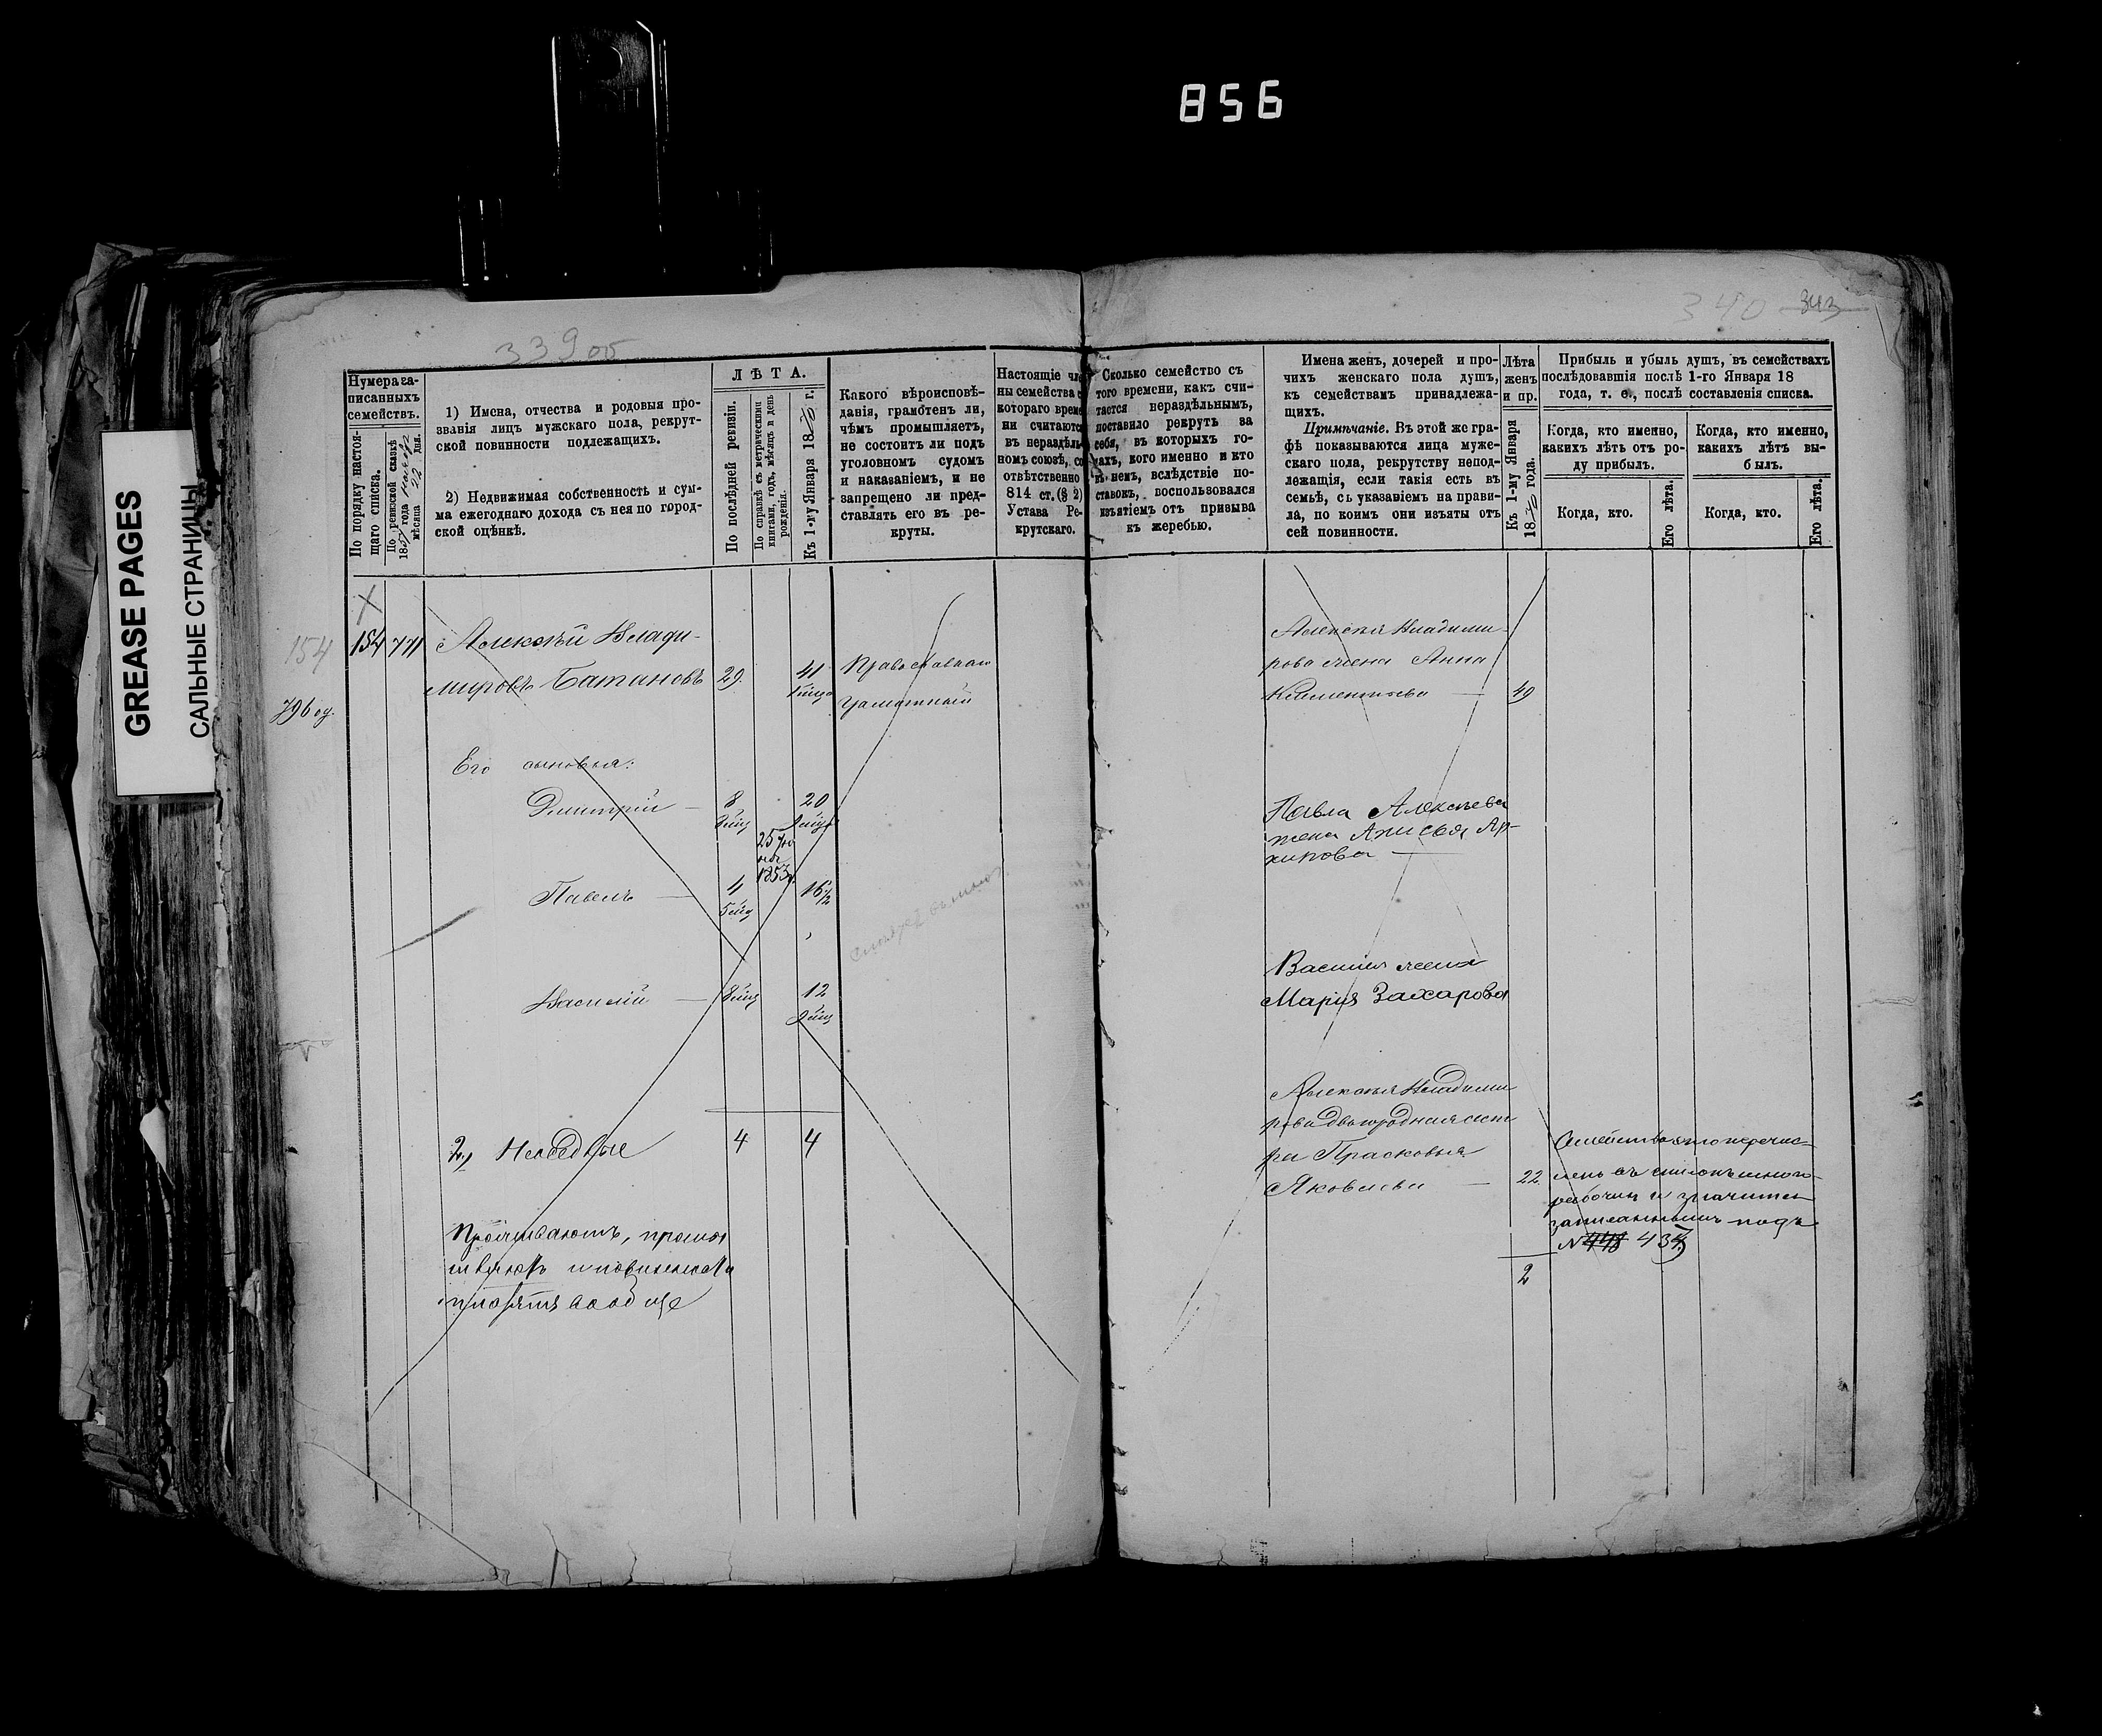 856
GREASE PAGES
САЛЬНЫЕ СТРАНИЦЫ
339 об
340 343
Нумера за-
писанныхъ
семействъ.
По порядку настоя-
щаго списка.
По ревизской сказкѣ
18 года
мѣсяца 22 дня.
1) Имена, отчества и родовыя про-
званія лицъ мужскаго пола, рекрут-
ской повинности подлежащихъ.
2) Недвижимая собственность и сум-
ма ежегоднаго дохода съ нея по город-
ской оцѣнкѣ.
ЛѢТА.
По послѣдней ревизіи.
По справкѣ съ метрическими
книгами, годъ, мѣсяцъ и день
рожденія.
Къ 1-му Января 1870 г.
Какого вѣроисповѣ-
данія, грамотенъ ли,
чѣмъ промышляетъ,
не состоитъ ли подъ
уголовномъ судомъ
и наказаніемъ, и не
запрещено ли пред-
ставлять его въ ре-
круты.
Настоящіе чле
ны семейства с
котораго време
ни считаются
въ нераздѣль
номъ союзѣ, со
отвѣтственно
814 ст. (§ 2)
Устава Ре-
крутскаго.
Сколько семейство съ
того времени, какъ счи-
тается нераздѣльнымъ,
поставило рекрутъ за
себя, въ которыхъ го-
дахъ, кого именно и кто
въ немъ, вслѣдствіе по-
ставокъ, воспользовался
изъятіемъ отъ призыва
къ жеребью.
Имена женъ, дочерей и про-
чихъ женскаго пола душъ,
къ семействамъ принадлежа-
щихъ.
Примѣчаніе. Въ этой же гра-
фѣ показываются лица муже-
скаго пола, рекрутству непод-
лежащія, если такія есть въ
семьѣ, съ указаніемъ на прави-
ла, по коимъ они изъяты отъ
сей повинности.
Лѣта
женъ
и пр.
Къ 1-му Января
1870 года.
Прибыль и убыль душъ, въ семействахъ
послѣдовавшія послѣ 1-го Января 18
года, т. е., послѣ составленія списка.
Когда, кто именно,
какихъ лѣтъ отъ ро-
ду прибылъ.
Когда, кто.
Его лѣта.
Когда, кто именно,
какихъ лѣтъ вы-
былъ.
Когда, кто.
Его лѣта.
154
154 771 Алексѣй Влади-
мировъ Батановъ 29. 41
Православнаго
грамотный
Его сыновья:
Дмитрій — 8 20
25
1853г.
Павелъ — 4 16½
Василій — 12
2, Наседкые 4 4
Проживаютъ, промы
и повинности
платятъ вообще
Алексѣя Владими-
рова жена Анна
Климентьева — 49
Павла Алексѣева
жена Анисья Ар-
хипова —
Василія жена
Марія Захарова
Алексѣя Владими
рова двоюродная сест
ра Прасковья
Яковлева — 22.
2
Семейство это перечис-
лено въ списокъ много-
рабочихъ и значится
записаннымъ подъ
N 448 434